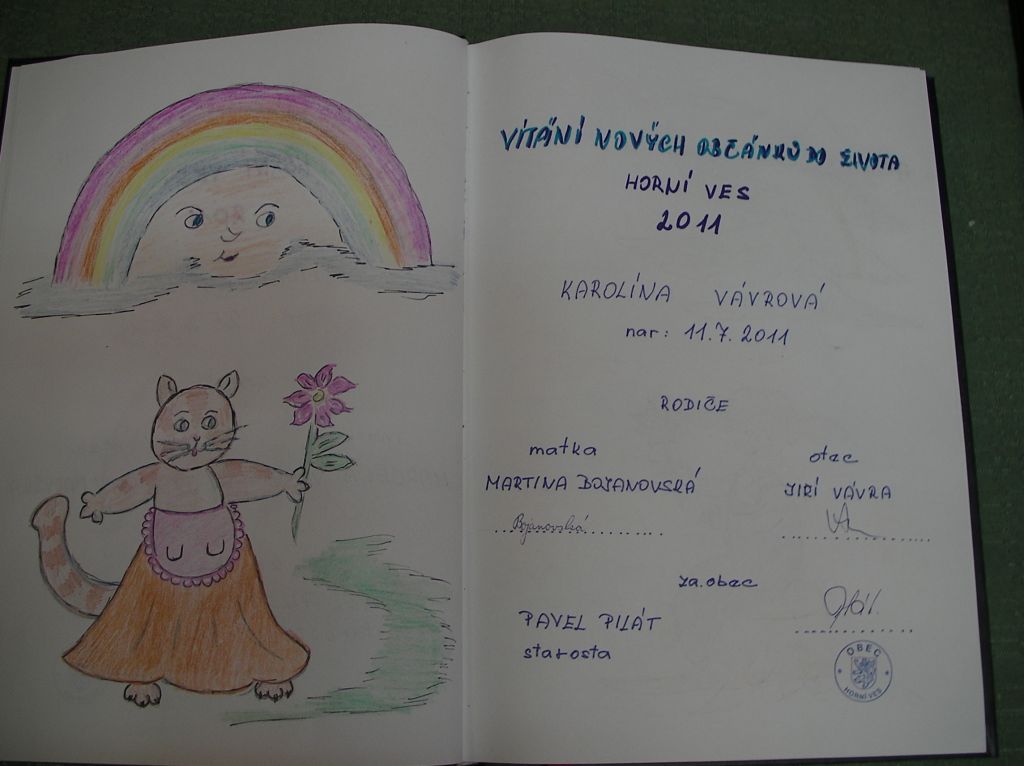 VÍTÁNÍ NOVÝCH OBČÁNKŮ DO ŽIVOTA
HORNÍ VES
2011
KAROLÍNA VÁVROVÁ
nar: 11.7. 2011
RODIČE
matka
otec
MARTINA BOJANOVSKÁ
JIŘÍ VÁVRA
Bojanovská
za obec
PAVEL PILÁT
starosta
OBEC
HORNÍ VES